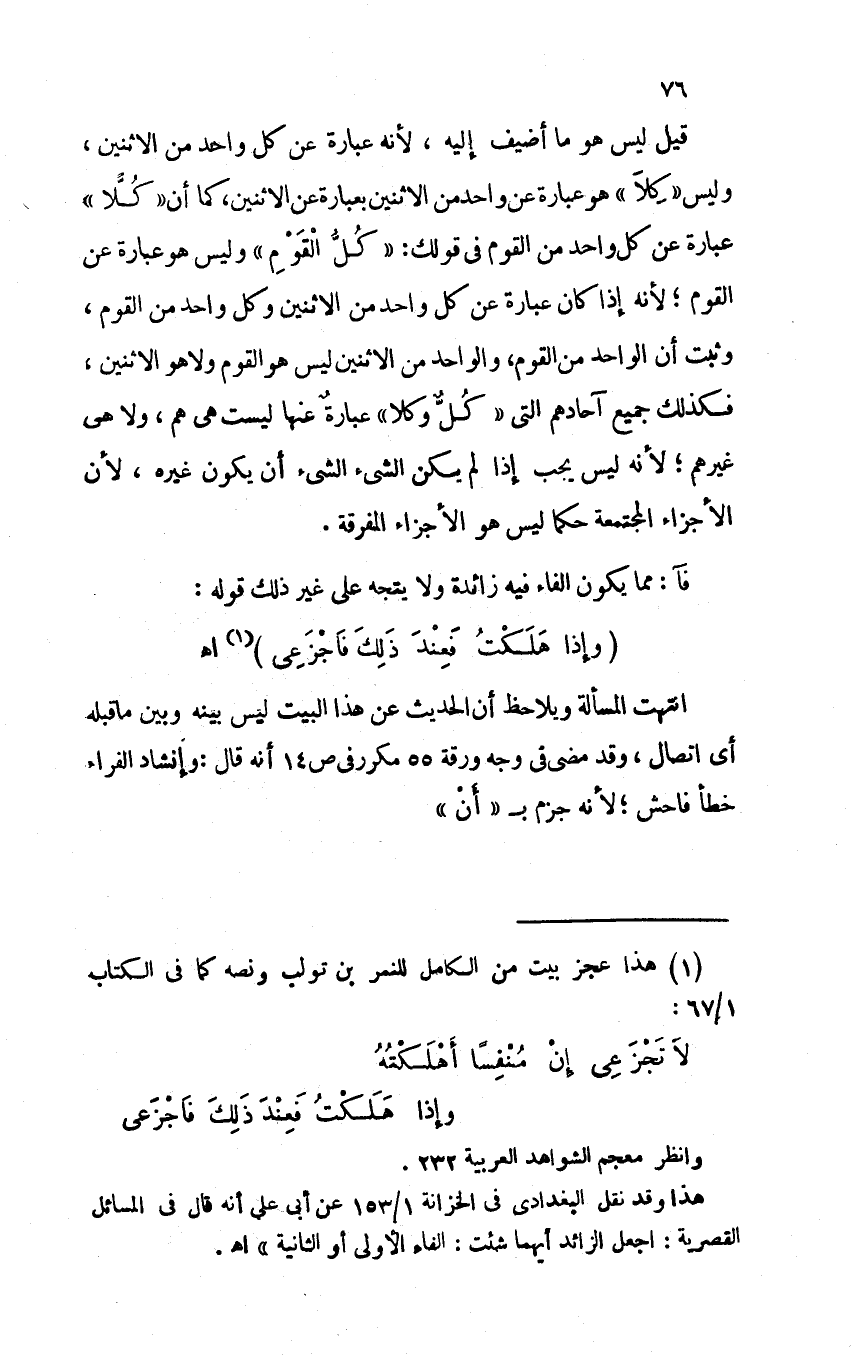 ٧٦
قيل ليس هو ما أضيف إليه ، لأنه عبارة عن كل واحد من الاثنين ،
وليس « كِلاَ » هو عبارة عن واحد من الاثنين بعبارة عن الاثنين، كما أن « كُلًّا »
عبارة عن كل واحد من القوم فى قولك: « كُلُّ الْقَوْمِ » وليس هو عبارة عن
القوم ؛ لأنه إذا كان عبارة عن كل واحد من الاثنين وكل واحد من القوم ،
وثبت أن الواحد من القوم، والواحد من الاثنين ليس هو القوم ولا هو الاثنين ،
فكذلك جميع آحادهم التى « كُلٌّ وكلا » عبارةٌ عنها ليست هى هم ، ولا هى
غيرهم ؛ لأنه ليس يجب إذا لم يكن الشىء الشىء أن يكون غيره ، لأن
الأجزاء المجتمعة حكما ليس هو الأجزاء المفرقة .
فآ : مما يكون الفاء فيه زائدة ولا يتجه على غير ذلك قوله :
( وإذا هَلَكْتُ فَعِنْدَ ذَلِكَ فَاجْزَعِى )(١) اه
انتهت المسألة ويلاحظ أن الحديث عن هذا البيت ليس بينه وبين ماقبله
أى اتصال ، وقد مضى فى وجه ورقة ٥٥ مكرر فى ص ١٤ أنه قال : وإنشاد الفراء
خطأ فاحش ؛ لأنه جزم بـ « أَنْ »
(١) هذا عجز بيت من الكامل للنمر بن تولب ونصه كما فى الكتاب
٦٧/١ :
لاَ تَجْزَعِى إِنْ مُنْفِسًا أَهْلَكْتُهُ
وإذا هَلَكْتُ فَعِنْدَ ذَلِكَ فَاجْزَعى
وانظر معجم الشواهد العربية ٢٣٢ .
هذا وقد نقل البغدادى فى الخزانة ١٥٣/١ عن أبى على أنه قال فى المسائل
القصرية : اجعل الزائد أيهما شئت : الفاء الأولى أو الثانية » اه .